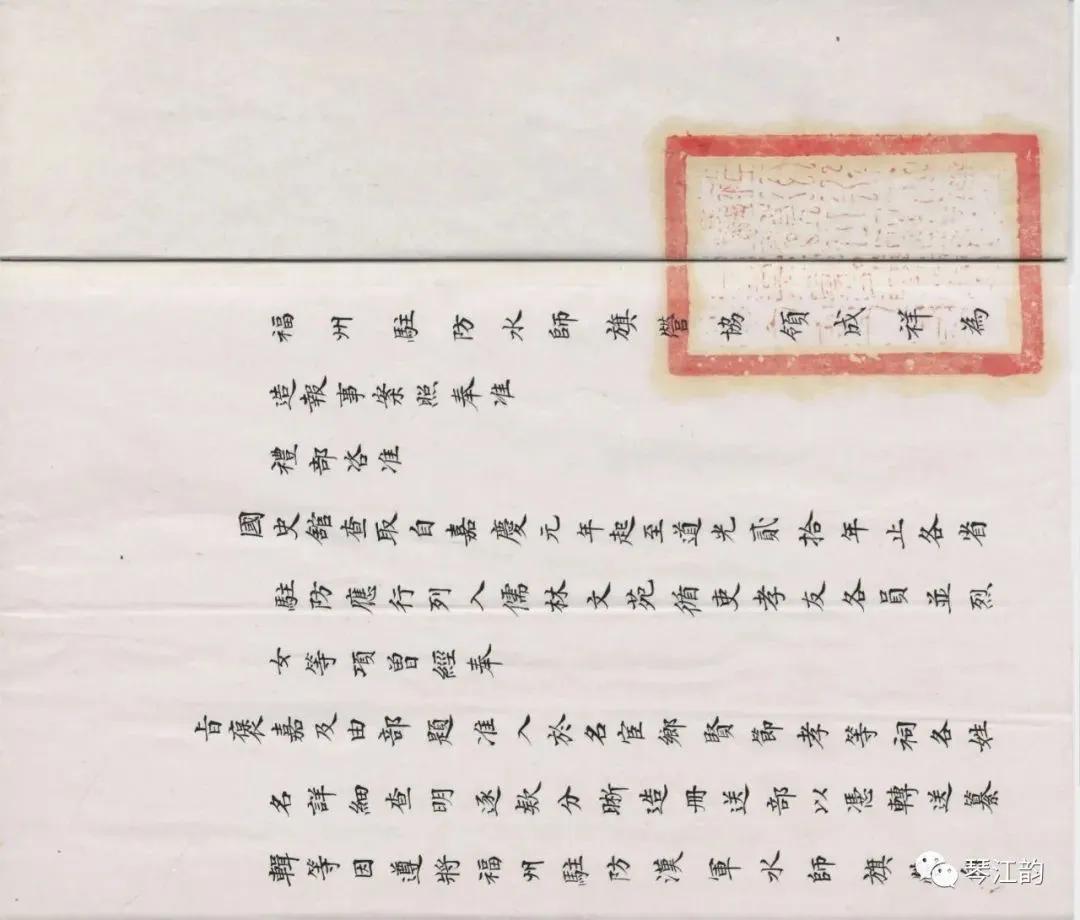 福州駐防水師旗營協領成祥為
造報事案照奉准
禮部咨准
國史館查取自嘉慶元年起至道光貳拾年止各省
駐防應行列入儒林文苑循吏孝友各員並烈
女等項曾經奉
旨褒嘉及由部題准入於名宦鄉賢節孝等祠各姓
名詳細查明逐欵分晰造冊送部以憑轉送纂
輯等因遵將福州駐防漢軍水師旗
琴江韵